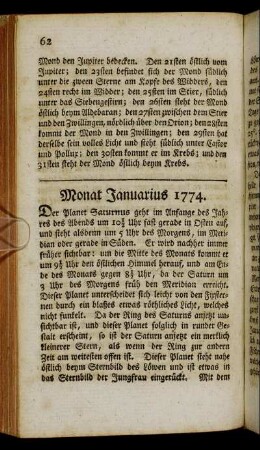 62
Mond den Jupiter bedecken. Den 21sten östlich vom
Jupiter; den 23sten befindet sich der Mond südlich
unter die zween Sterne am Kopfe des Widders, den
24sten recht im Widder; den 25sten im Stier, südlich
unter das Siebengestirn; den 26sten steht der Mond
östlich beym Aldebaran; den 27sten zwischen dem Stier
und den Zwillingen, nördlich über den Orion; den 28sten
kommt der Mond in den Zwillingen; den 29sten hat
derselbe sein volles Licht und stehet südlich unter Castor
und Pollux; den 30sten kommt er im Krebs; und den
31sten steht der Mond östlich beym Krebs.
Monat Januarius 1774.
Der Planet Saturnus geht im Anfange des Jah-
res des Abends um 10¾ Uhr fast gerade in Osten auf,
und steht alsdenn um 5 Uhr des Morgens, im Meri-
dian oder gerade in Süden. Er wird nachher imme
früher sichtbar: um die Mitte des Monats kommt er
um 9¾ Uhr den östlichen Himmel herauf, und am En-
de des Monats gegen 8¾ Uhr, da der Saturn um
3 Uhr des Morgens früh den Meridian erreicht.
Dieser Planet unterscheidet sich leicht von den Fixster-
nen durch ein blasses etwas röthliches Licht, welches
nicht funkelt. Da der Ring des Saturns anjetzt un-
sichtbar ist, und dieser Planet folglich in runder Ge-
stalt erscheint, so ist der Saturn anjetzt ein merklich
kleinerer Stern, als wenn der Ring zur andern
Zeit am weitesten offen ist. Dieser Planet steht nahe
östlich beym Sternbild des Löwen und ist etwas in
das Sternbild der Jungfrau eingerückt. Mit dem